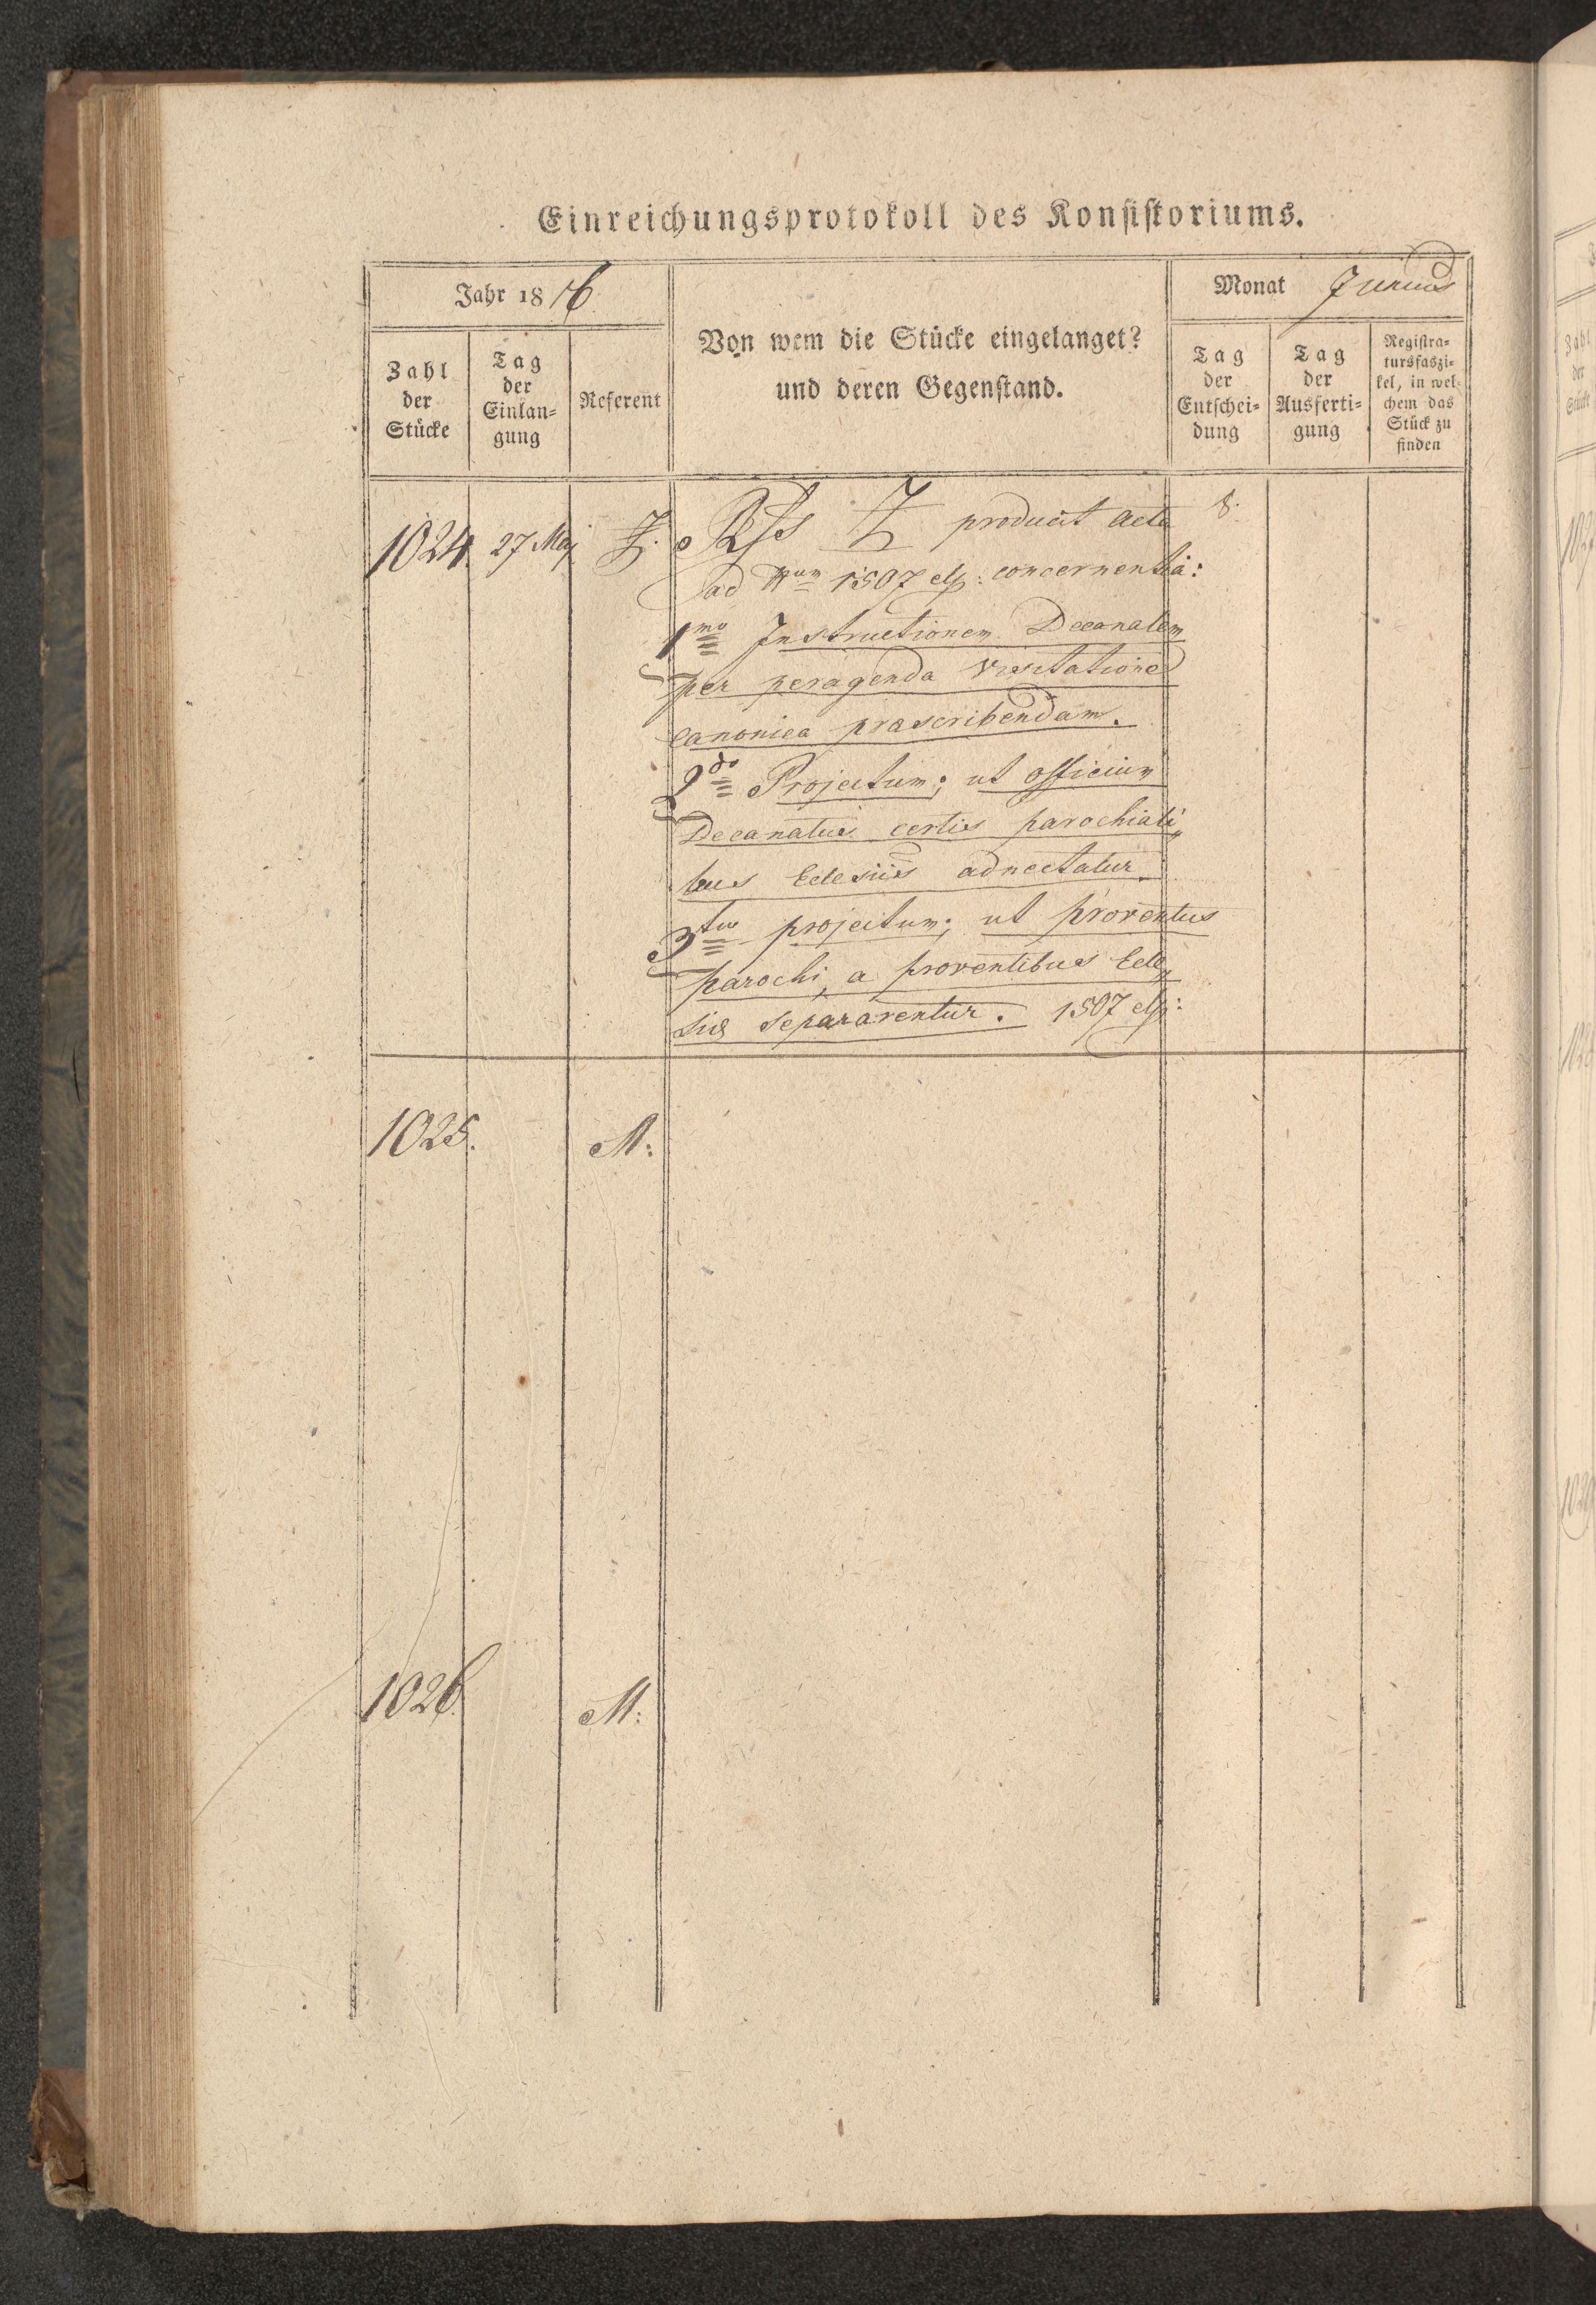 Einreichungsprotokoll des Konsistoriums.
Jahr 1816
Monat Junius
Von wem die Stücke eingelanget?
und deren Gegenstand.
Zahl
der
Stücke
Tag
der
Einlan=
gung
Referent
Tag
der
Entschei=
dung
Tag
der
Ausferti=
gung
Registra=
tursfaszi=
kel, in wel=
chem das
Stück zu
finden
1024. 27 Maj Z. Rss Z producit acta 8.
ad Nrum 1507 elp: concernentia:
1mo Instructionem Decanalem
per peragenda visitatione
canonica praescribendam.
2do Projectum; ut officium
Decanatus certis parochiali„
bus Eclesiis adnectatur.
3tio projectum; ut proventus
parochi, a proventibus Ecle„
siæ separarentur. 1507 elp:
1025. M:
1026. M: